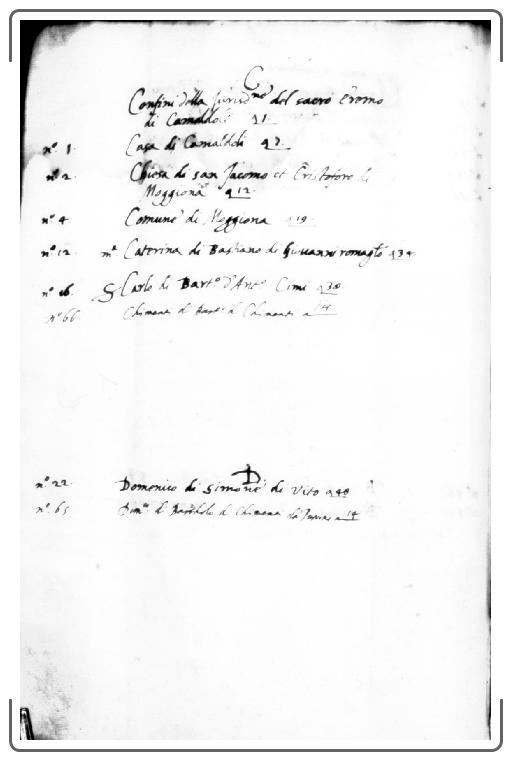 C
Confini della Jurisd.ne del sacro Eremo
di Camaldoli a 1.
nº. 1. Casa di Camaldoli a 7.
nº. 2. Chiesa di san Jacomo et Cristofero di
Moggiona a 12.
nº. 4 Comune di Moggiona a 19.
nº. 12. mª Caterina di Bastiano di Giovanni a 34.
nº. 16. Carlo di Bart.º d'Ant.º Cimi a 38
nº. 66. Chimenti di Bart.º di Chimenti a
D
nº. 22. Domenico di Simone di Vito a 48
nº. 65 di Bartholo di Chimenti